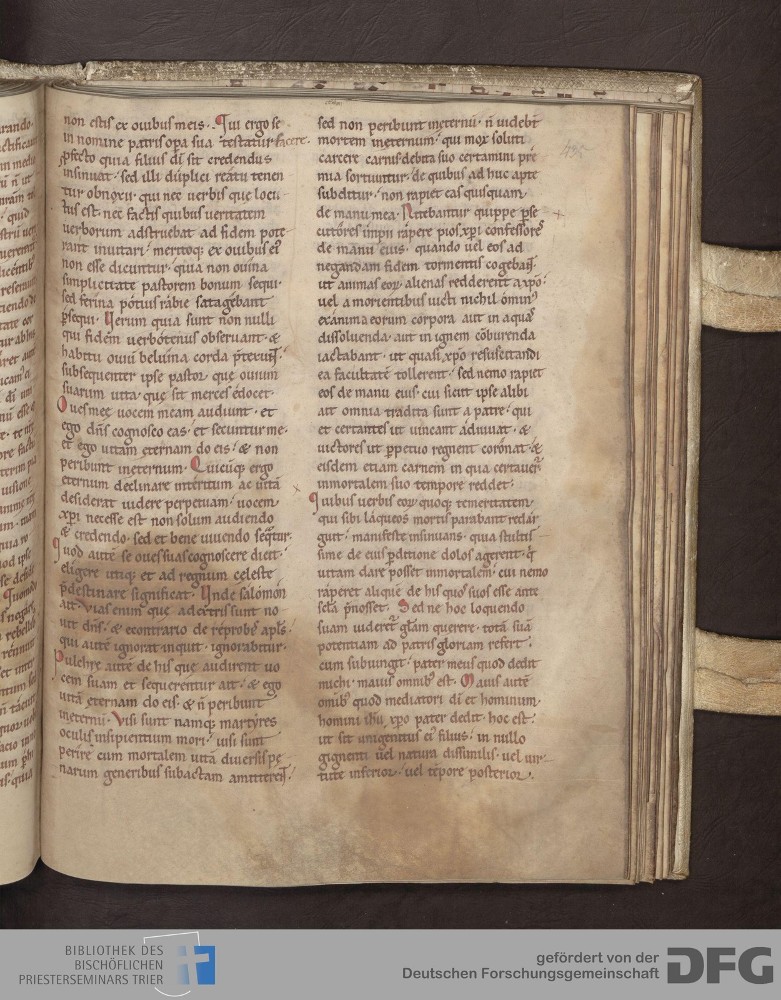 non estis ex ouibus meis. Qui ergo se
in nomine patris opa sua testatur facere.
pfecto quia filius dī sit credendus
insinuat. sed illi duplici reatu tenen
tur obnoxii. qui nec uerbis que locu
tus est. nec factis quibus ueritatem
uerborum adstruebat ad fidem pote
rant inuitari. meritoq; ex ouibus ei
non esse dicuntur. quia non ouina
simplicitate pastorem bonum sequi.
sed ferina potius rabie satagebant
psequi. Uerum quia sunt non nulli
qui fidem uerbotenus obseruant. &
habitu ouiū beluina corda
subsequenter ipse pastor. que ouium
suarum uita. que sit merces edocet.
Oues meę uocem meam audiunt. et
ego dn̄s cognosco eas. et secuntur me.
et ego uitam ęternam do eis. & non
peribunt inęternum. Quicūq; ergo
ęternum declinare interitum ac uitā
desiderat uidere perpetuam. uocem
xp̄i necesse est non solum audiendo
& credendo. sed et bene uiuendo
Quod autē se oues suas cognoscere dicit.
eligere utiq; et ad regnum celeste
pdestinare significat. Unde salomon
ait. Vias enim que a dextris sunt no
uit dn̄s. & econtrario de reprobis apl̄s.
qui autē ignorat inquit. ignorabitur.
Pulchre autē de his que audirent uo
cem suam et sequerentur ait. & ego
uitā ęternam do eis. & n̄ peribunt
inęternū. Visi sunt namq; martyres
oculis insipientium mori. uisi sunt
perire cum mortalem uitā diuersis pę
narum generibus subactam
sed non peribunt inęternū. n̄ uidebt̄
mortem inęternum. qui mox soluti
carcere carnis debita suo certamini prę
mia sortiuntur. de quibus adhuc apte
subditur. non rapiet eas quisquam
de manu mea. Nitebantur quippe pse
cutores impii rapere pios xp̄i confessores
de manu eius. quando uel eos ad
negandam fidem tormentis
ut animas eoꝝ alienas redderent a xp̄o.
uel a morientibus uicti nichil
exanima eorum corpora aut in aquas
dissoluenda. aut in ignem cōburenda
iactabant. ut quasi xp̄o resuscitandi
ea facultatē tollerent. sed nemo rapiet
eos de manu eius. cui sicut ipse alibi
ait omnia tradita sunt a patre. qui
et certantes ut uincant adiuuat. &
uictores ut ppetuo regnent coronat. &
eisdem etiam carnem in qua
inmortalem suo tempore reddet.
Quibus uerbis eoꝝ quoq; temeritatem
qui sibi laqueos mortis parabant redar
guit. manifeste insinuans. quia stultis
sime de eius pditione dolos agerent. q̄
uitam dare posset inmortalem. cui nemo
raperet aliquē de his quos suos esse ante
scl̄a pnosset. Sed ne hoc loquendo
suam uideret gl̄am querere. totā suā
potentiam ad patris gloriam refert.
cum subiungit. pater meus quod dedit
michi. maius omnib; est. Maius autē
omib; quod mediatori dī et hominum
homini ih̄u xp̄o pater dedit. hoc est.
ut sit unigenitus ei filius. in nullo
gignenti uel natura dissimilis. uel uir
tute inferior. uel tēpore posterior.
435
BIBLIOTHEK DES
BISCHÖFLICHEN
PRIESTERSEMINARS TRIER
gefördert von der
Deutschen Forschungsgemeinschaft
DFG